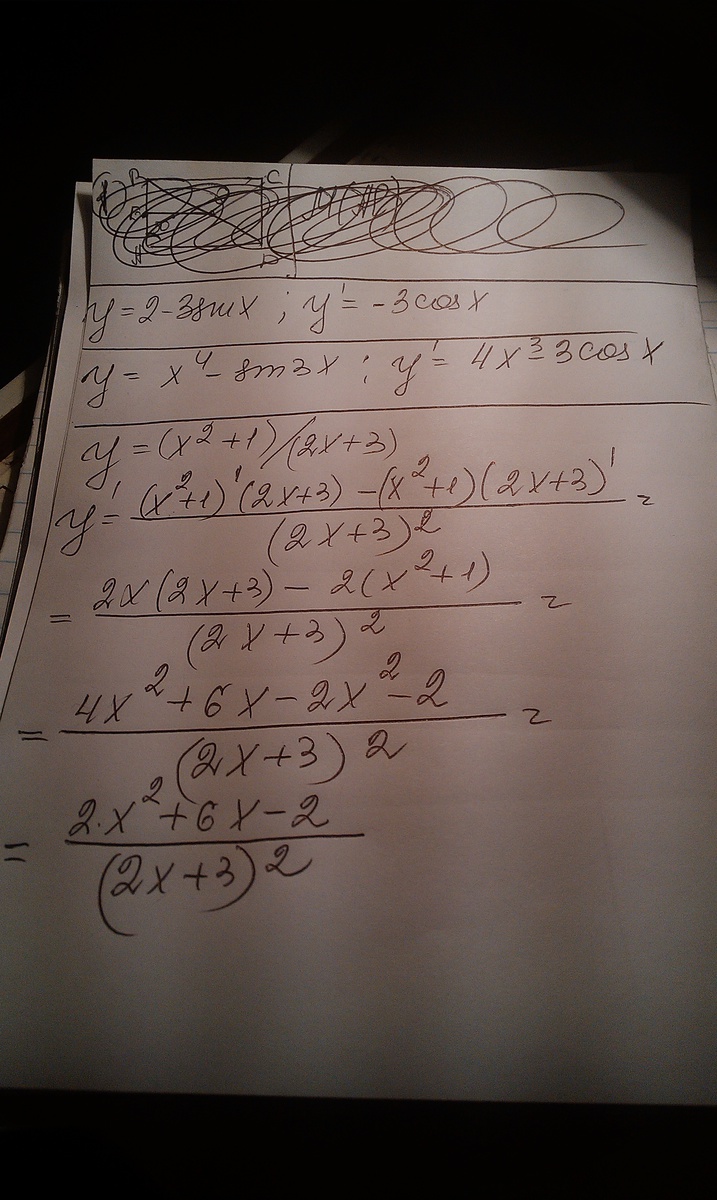 B C
A D
y = 2 - 3sinx ; y' = -3cosx
y = x⁴ - sin3x ; y' = 4x³ - 3cosx
y = (x²+1)/(2x+3)
y' = ((x²+1)'(2x+3) - (x²+1)(2x+3)')/(2x+3)² =
= (2x(2x+3) - 2(x²+1))/(2x+3)² =
= (4x²+6x-2x²-2)/(2x+3)² =
= (2·x²+6x-2)/(2x+3)²